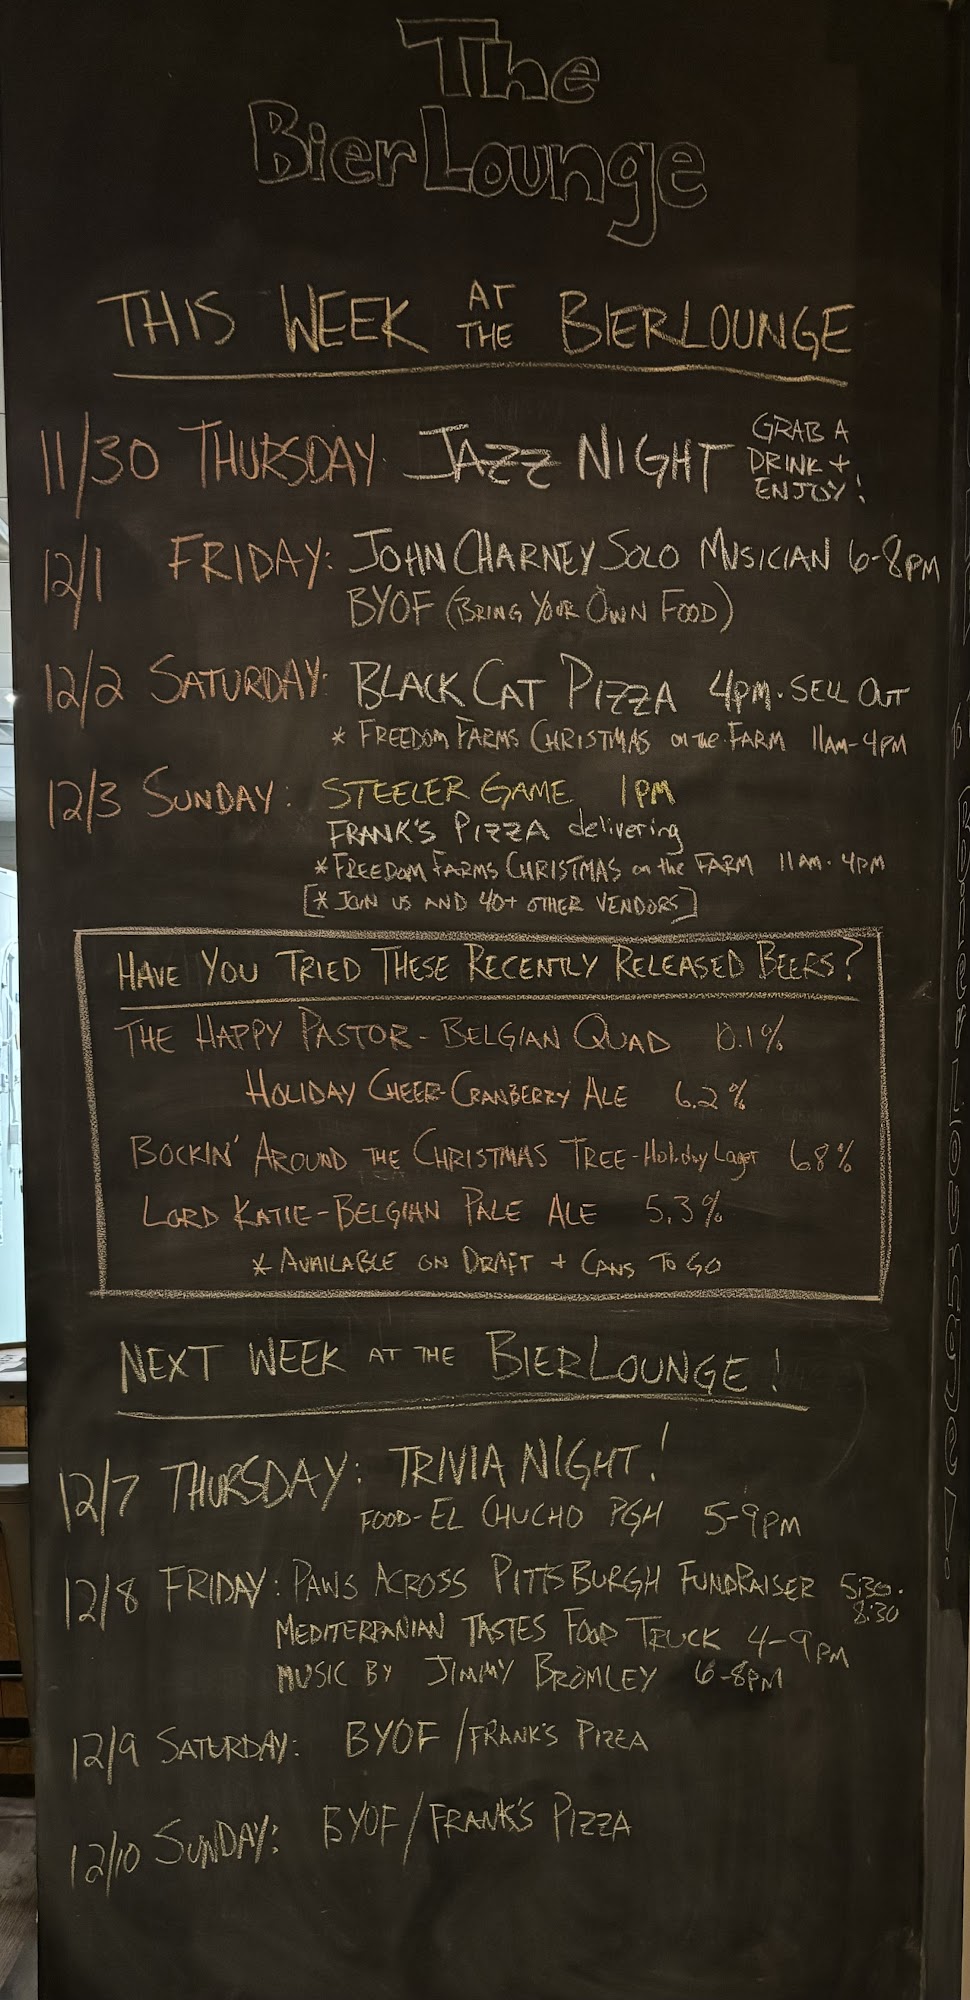 The
BierLounge
THIS WEEK AT THE BIERLOUNGE
11/30 THURSDAY: JAZZ NIGHT GRAB A DRINK + ENJOY!
12/1 FRIDAY: JOHN CHARNEY SOLO MUSICIAN 6-8PM
BYOF (BRING YOUR OWN FOOD)
12/2 SATURDAY: BLACK CAT PIZZA 4PM-SELL OUT
* FREEDOM FARMS CHRISTMAS on the FARM 11AM-4PM
12/3 SUNDAY: STEELER GAME 1PM
FRANK'S PIZZA delivering
* FREEDOM FARMS CHRISTMAS on the FARM 11AM-4PM
[* JOIN US AND 40+ OTHER VENDORS]
HAVE YOU TRIED THESE RECENTLY RELEASED BEERS?
THE HAPPY PASTOR - BELGIAN QUAD 10.1%
HOLIDAY CHEER-CRANBERRY ALE 6.2%
BOCKIN' AROUND THE CHRISTMAS TREE-Holiday Lager 6.8%
LORD KATIE-BELGIAN PALE ALE 5.3%
* AVAILABLE ON DRAFT + CANS TO GO
NEXT WEEK AT THE BIERLOUNGE!
12/7 THURSDAY: TRIVIA NIGHT!
FOOD-EL CHUCHO PGH 5-9PM
12/8 FRIDAY: PAWS ACROSS PITTSBURGH FUNDRAISER 5:30-8:30
MEDITERRANIAN TASTES FOOD TRUCK 4-9PM
MUSIC BY JIMMY BROMLEY 6-8PM
12/9 SATURDAY: BYOF/FRANK'S PIZZA
12/10 SUNDAY: BYOF/FRANK'S PIZZA